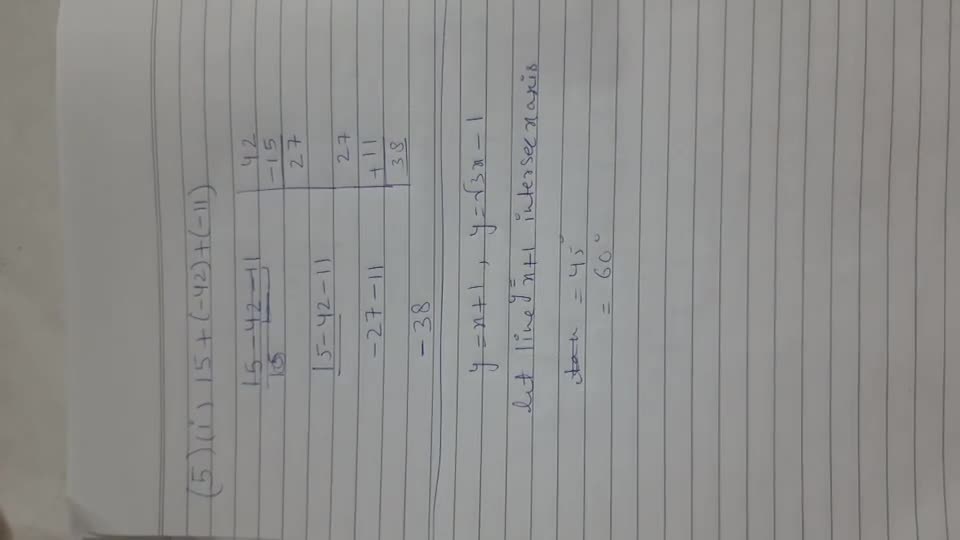 (5) (i) 15 + (-42) + (-11)
15 - 42 - 11
15
42
-15
27
15 - 42 - 11
-27 - 11
27
+ 11
38
-38
y = x + 1, y = √3x - 1
let line y = x + 1 intersec x axis
tan = 45°
= 60°